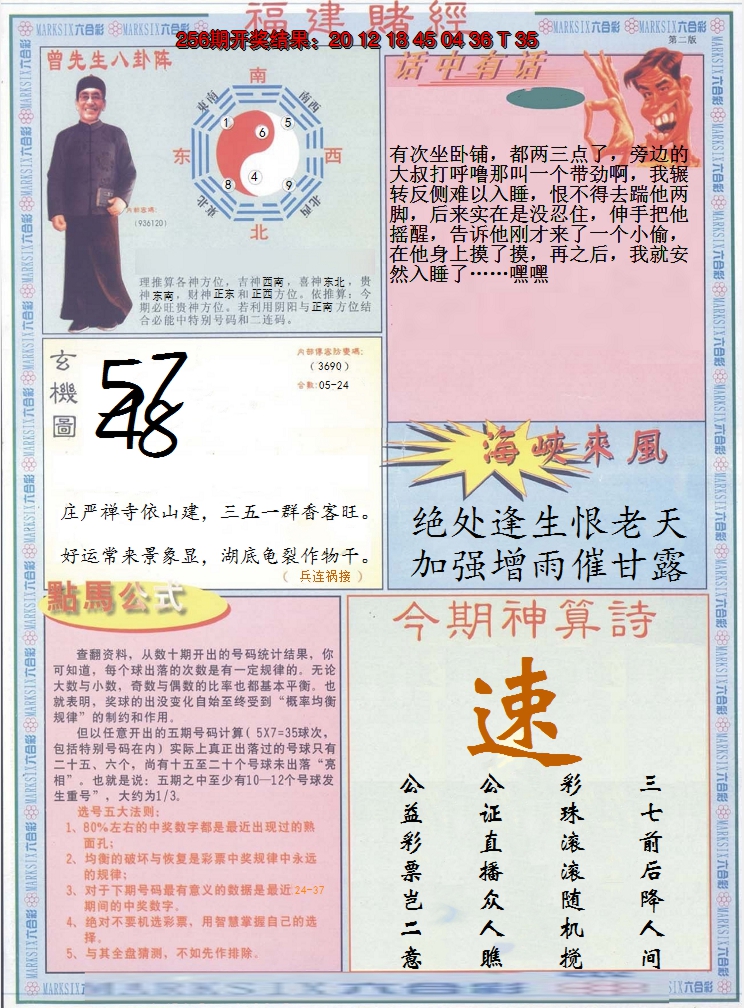 福建賭經
256期开奖结果：20 12 18 45 04 36 T 35
第二版
曾先生八卦阵
南
东南
南西
东
西
东北
北西
北
1
6
5
8
4
9
内部密碼:
(936120)
理推算各神方位，吉神西南，喜神东北，贵
神东南，财神正东和正西方位。依推算：今
期必旺贵神方位。若利用阴阳与正南方位结
合必能中特别号码和二连码。
话中有话
有次坐卧铺，都两三点了，旁边的
大叔打呼噜那叫一个带劲啊，我辗
转反侧难以入睡，恨不得去踹他两
脚，后来实在是没忍住，伸手把他
摇醒，告诉他刚才来了一个小偷，
在他身上摸了摸，再之后，我就安
然入睡了……嘿嘿
玄機圖
57
48
(3690)
合数:05-24
庄严禅寺依山建，三五一群香客旺。
好运常来景象显，湖底龟裂作物干。
（ 兵连祸接 ）
海峽來風
绝处逢生恨老天
加强增雨催甘露
點馬公式
查翻资料，从数十期开出的号码统计结果，你
可知道，每个球出落的次数是有一定规律的。无论
大数与小数，奇数与偶数的比率也都基本平衡。也
就表明，奖球的出没变化自始至终受到“概率均衡
规律”的制约和作用。
但以任意开出的五期号码计算( 5X7=35球次，
包括特别号码在内）实际上真正出落过的号球只有
二十五、六个，尚有十五至二十个号球未出落“亮
相”。也就是说：五期之中至少有10—12个号球发
生重号”，大约为1/3。
选号五大法则:
1、80%左右的中奖数字都是最近出现过的熟
面孔;
2、均衡的破坏与恢复是彩票中奖规律中永远
的规律;
3、对于下期号码最有意义的数据是最近24-37
期间的中奖数字。
4、绝对不要机选彩票，用智慧掌握自己的选
择。
5、与其全盘猜测，不如先作排除.
今期神算詩
速
三七前后降人间
彩珠滚滚随机搅
公证直播众人瞧
公益彩票岂二意
MARKSIX六合彩